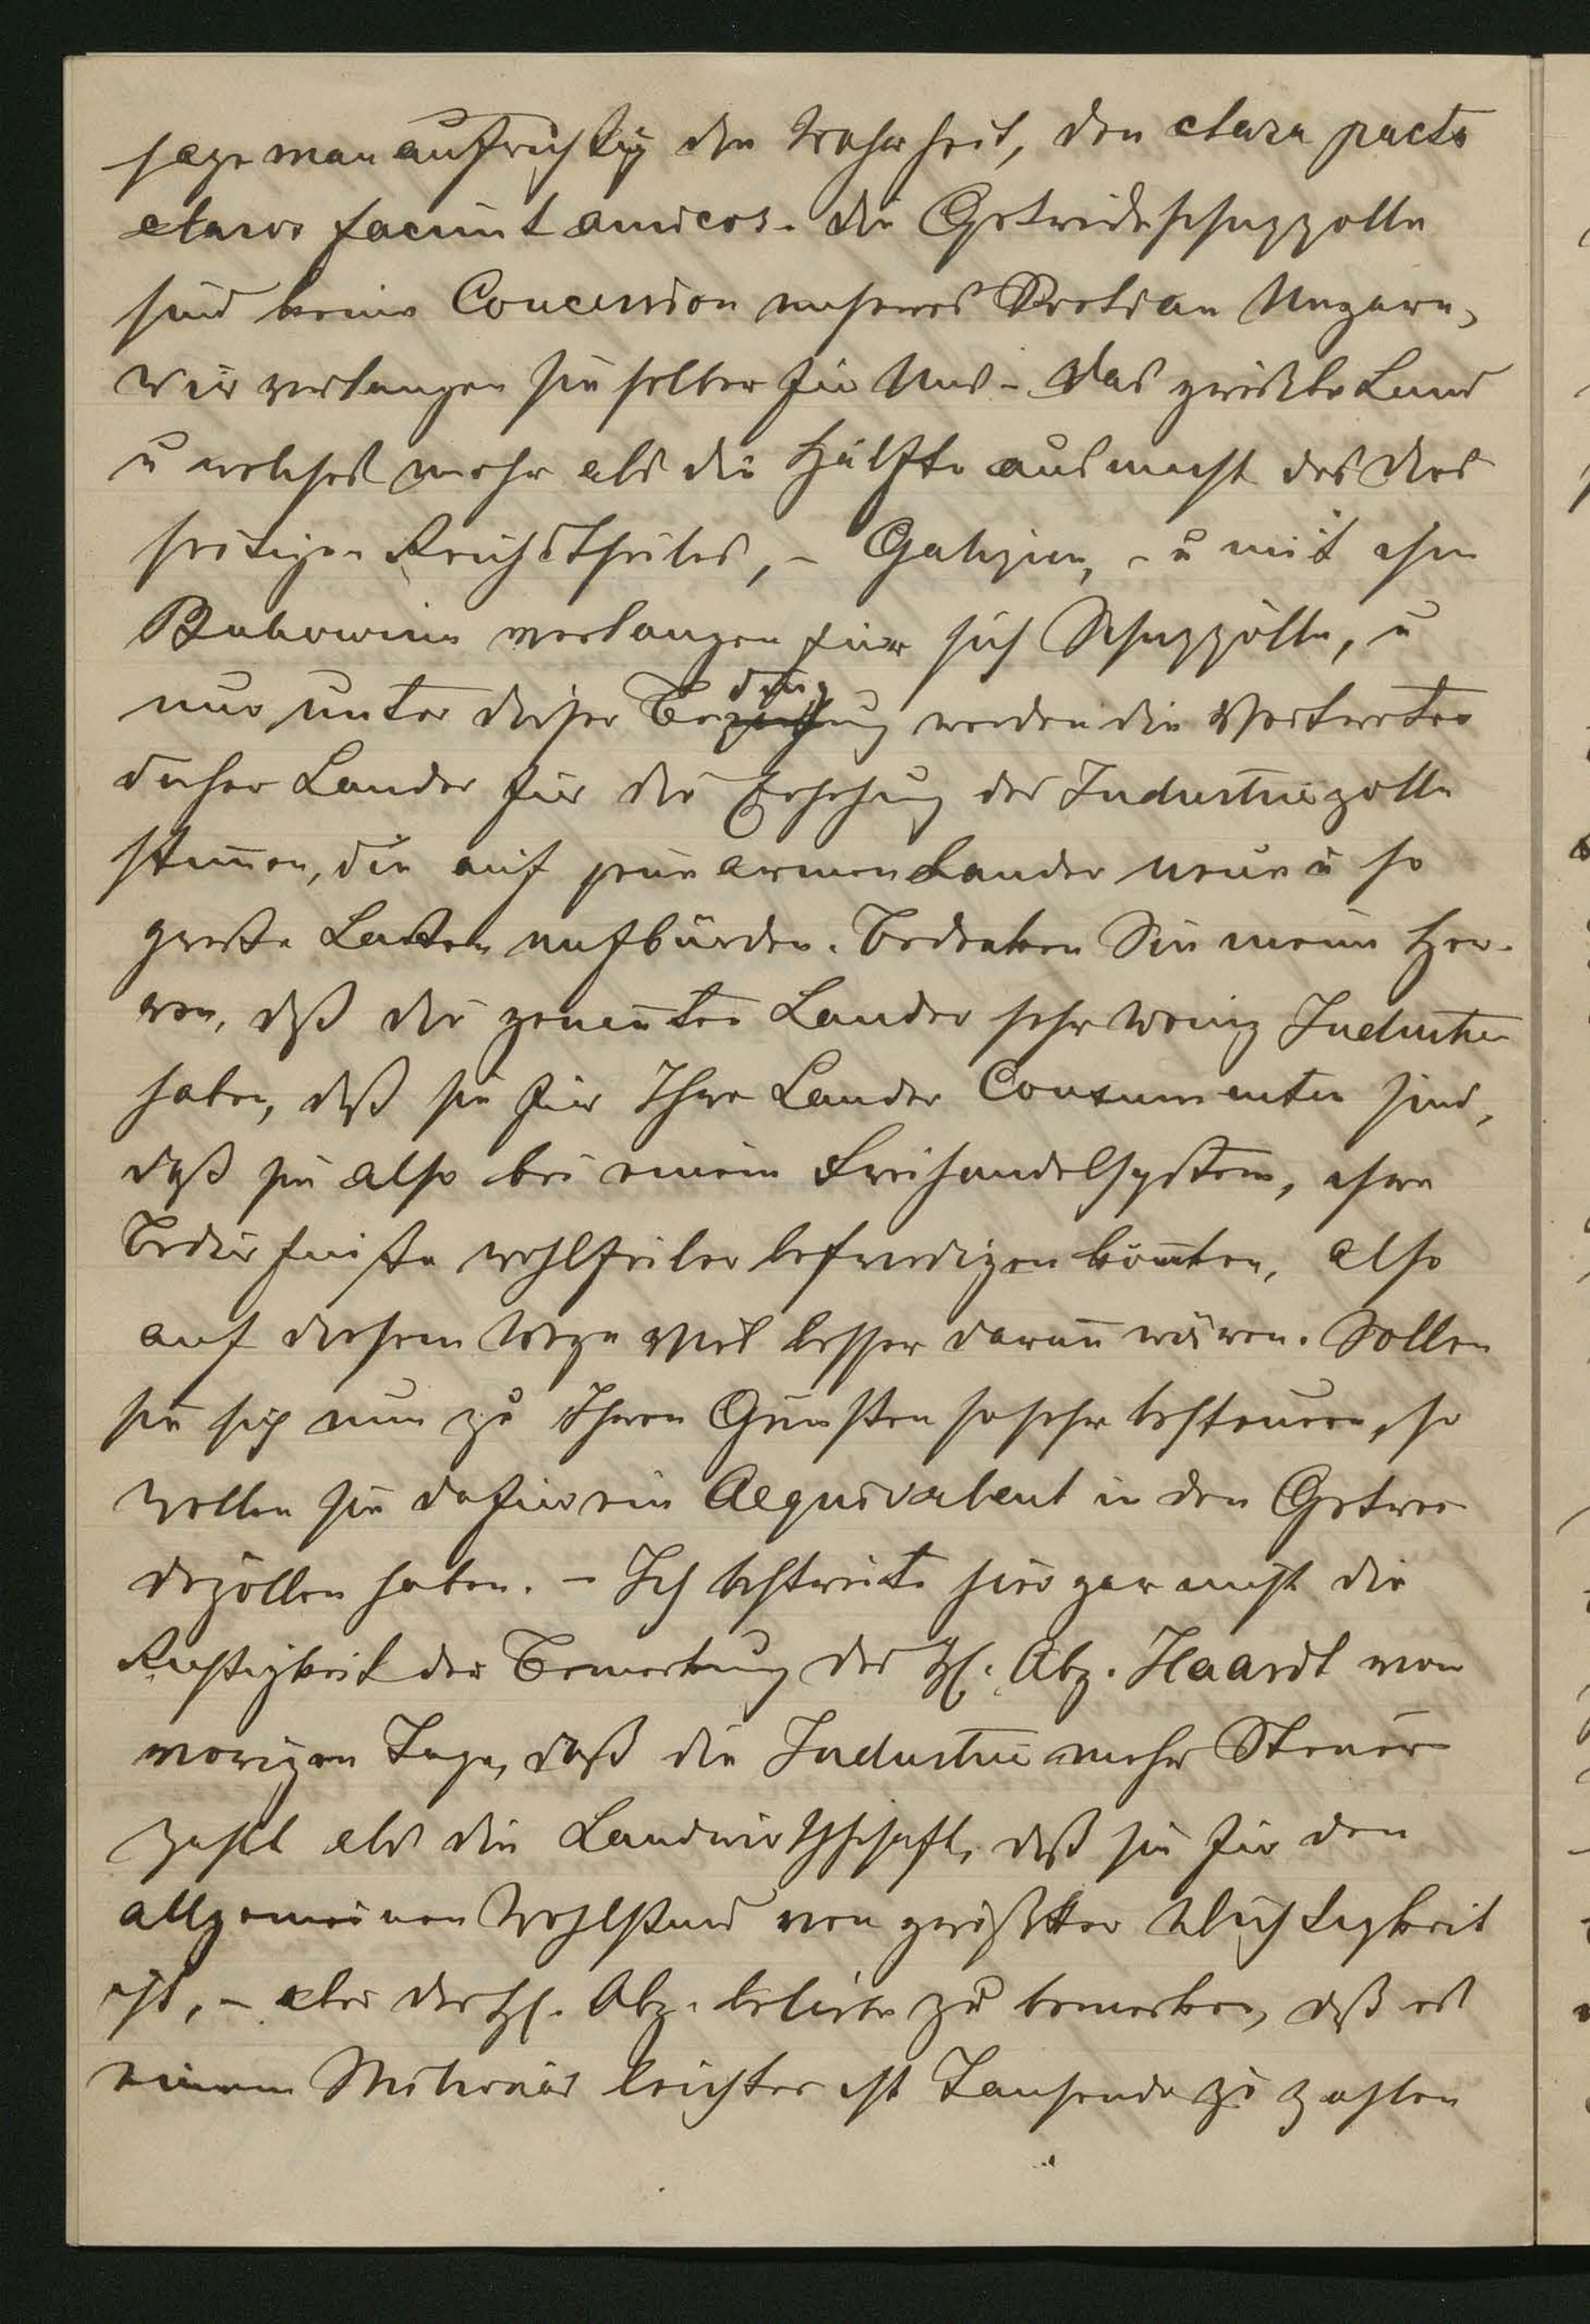 sage man aufrichtig die Wahrheit, den clara pacta
claros faciunt amicos. Die Getreideschuzzolle
sind keine Concession unseres an Ungarn,
wir verlangen sie selber für Uns – Das größte Land
u welches mehr als die Hälfte ausmacht des dies
seitigen Reichstheiles, – Galizien, – u mit ihm
Bukowina verlangen für sich Schuzzölle, u
nur unter dieser Bedingung werden die Vertreter
dieser Lander für die Erhohung der Industriezolle
stim̄en, die auf jene armen Lander neue u so
große Lasten aufbürden. Bedenken Sie meine Her-
ren, daß die genan̄ten Lander sehr wenig Industrie
haben, daß sie für Ihre Lander Consumenten sind,
daß sie also bei einem Freihandelsystem, ihre
Bedürfniße wohlfeiler befriedigen kön̄ten, also
auf diesem Wege viel besser daran wären. Sollen
sie sich nun zu Ihren Gunsten so sehr besteuern, so
wollen sie dafür ein Aequivalent in den Getrei
dezöllen haben. – Ich bestreite hier gar nicht die
Richtigkeit der Bemerkung des H. Abg. Haardt vom
vorigen Tage, daß die Industrie mehr Steuer
zahlt als die Landwirthschaft, daß sie für den
allgemeinen Wohlstand von größter Wichtigkeit
ist, – aber der H. Abg. beliebe zu bemerken, daß es
einem Milionär leichter ist Tausende zu zahlen